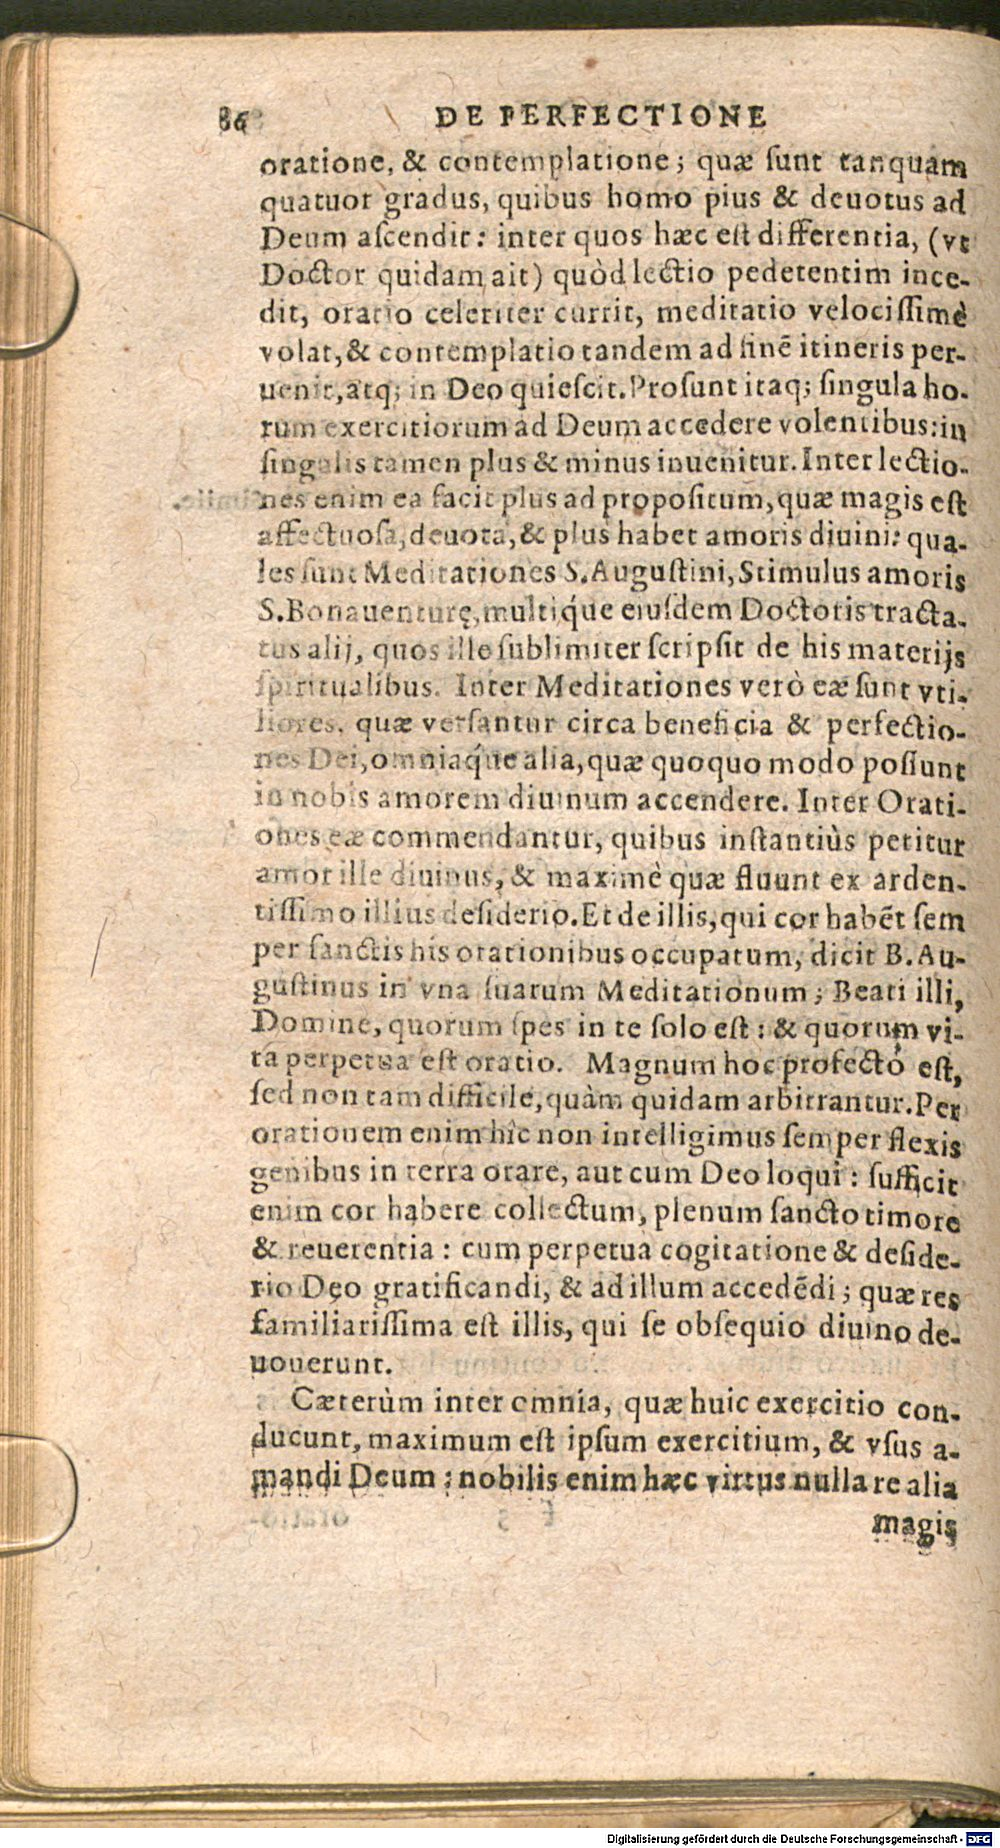 86 DE PERFECTIONE
oratione, & contemplatione; quæ ſunt tanquam
quatuor gradus, quibus homo pius & deuotus ad
Deum aſcendit: inter quos hæc eſt differentia, (vt
Doctor quidam ait) quòd lectio pedetentim ince-
dit, oratio celeriter currit, meditatio velociſſimè
volat, & contemplatio tandem ad finē itineris per-
uenit, atq; in Deo quieſcit. Proſunt itaq; ſingula ho-
rum exercitiorum ad Deum accedere volentibus: in
ſingulis tamen plus & minus inuenitur. Inter lectio-
nes enim ea facit plus ad propoſitum, quæ magis eſt
affectuoſa, deuota, & plus habet amoris diuini: qua-
les ſunt Meditationes S. Auguſtini, Stimulus amoris
S. Bonauenturę, multiq́ue eiuſdem Doctoris tracta-
tus alij, quos ille ſublimiter ſcripſit de his materijs
ſpiritualibus. Inter Meditationes verò eæ ſunt vti-
liores, quæ verſantur circa beneficia & perfectio-
nes Dei, omniaq́ue alia, quæ quoquo modo poſſunt
in nobis amorem diuinum accendere. Inter Orati-
ones eæ commendantur, quibus inſtantiùs petitur
amor ille diuinus, & maximè quæ fluunt ex arden-
tiſſimo illius deſiderio. Et de illis, qui cor habēt ſem
per ſanctis his orationibus occupatum, dicit B. Au-
guſtinus in vna ſuarum Meditationum; Beati illi,
Domine, quorum ſpes in te ſolo eſt: & quorum vi-
ta perpetua eſt oratio. Magnum hoc profectò eſt,
ſed non tam difficile, quàm quidam arbitrantur. Per
orationem enim hîc non intelligimus ſemper flexis
genibus in terra orare, aut cum Deo loqui: ſufficit
enim cor habere collectum, plenum ſancto timore
& reuerentia: cum perpetua cogitatione & deſide-
rio Deo gratificandi, & ad illum accedēdi; quæ res
familiariſſima eſt illis, qui ſe obſequio diuino de-
uouerunt.
Cæterùm inter omnia, quæ huic exercitio con-
ducunt, maximum eſt ipſum exercitium, & vſus a-
mandi Deum: nobilis enim hæc virtus nulla re alia
magis
Digitalisierung gefördert durch die Deutsche Forschungsgemeinschaft - DFG